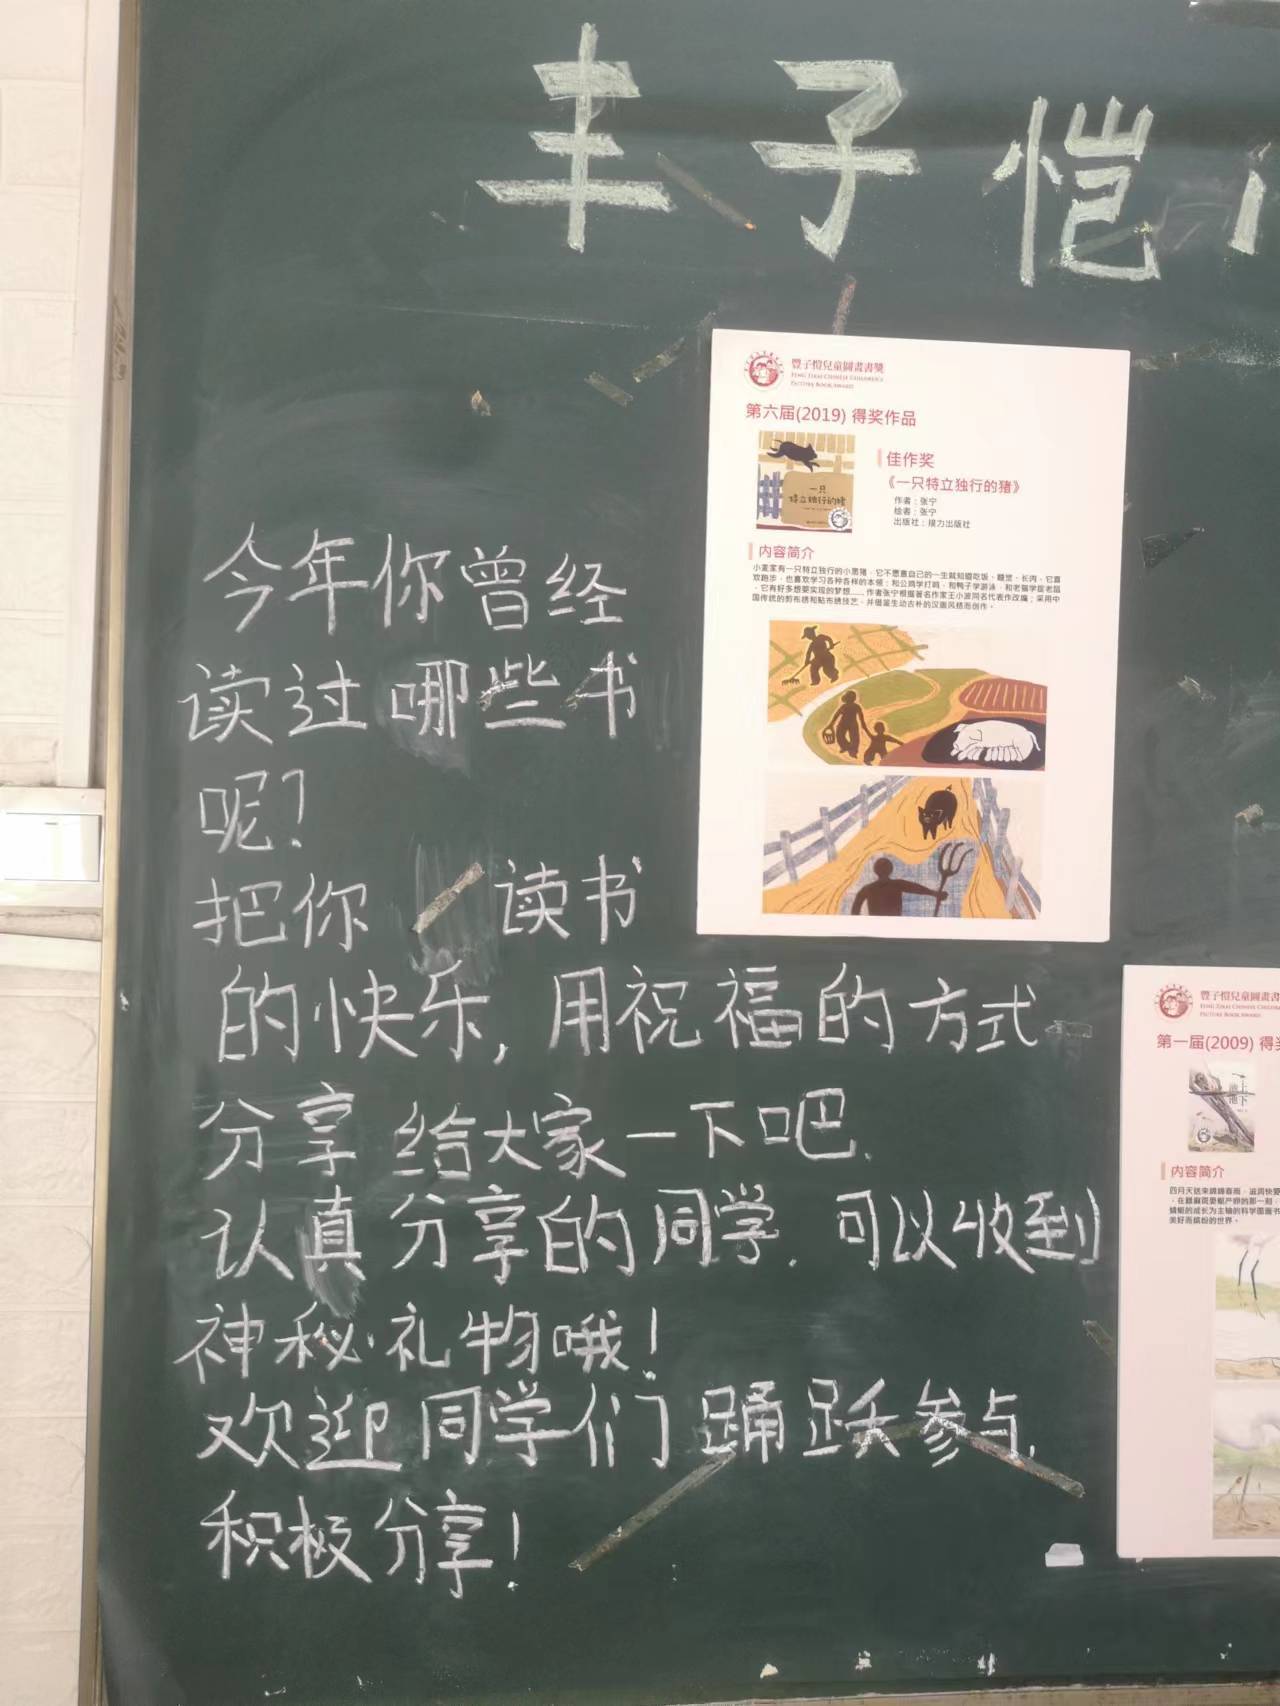 丰子恺
豐子愷兒童圖畫書獎
FENG ZIKAI CHINESE CHILDREN'S
PICTURE BOOK AWARD
第六届(2019) 得奖作品
一只
特立独行的猪
佳作奖
《一只特立独行的猪》
作者：张宁
绘者：张宁
出版社：接力出版社
内容简介
小麦家有一只特立独行的小黑猪，它不愿意自己的一生就知道吃饭、睡觉、长肉，它喜
欢跑步，也喜欢学习各种各样的本领：和公鸡学打鸣，和鸭子学游泳，和老猫学捉老鼠
，它有好多想要实现的梦想……作者张宁根据著名作家王小波同名代表作改编，采用中
国传统的剪布绣和贴布绣技艺，并借鉴生动古朴的汉画风格而创作。
今年你曾经
读过哪些书
呢？
把你 读书
的快乐，用祝福的方式
分享给大家一下吧.
认真分享的同学，可以收到
神秘礼物哦！
欢迎同学们踊跃参与，
积极分享！
豐子愷兒童圖畫書
FENG ZIKAI CHINESE CHILDRE
PICTURE BOOK AWARD
第一届(2009) 得奖
内容简介
四月天送来绵绵春雨，滋润快要
，在雌麻斑晏蜓产卵的那一刻，
蜻蜓的成长为主轴的科学图画书
美好而缤纷的世界。